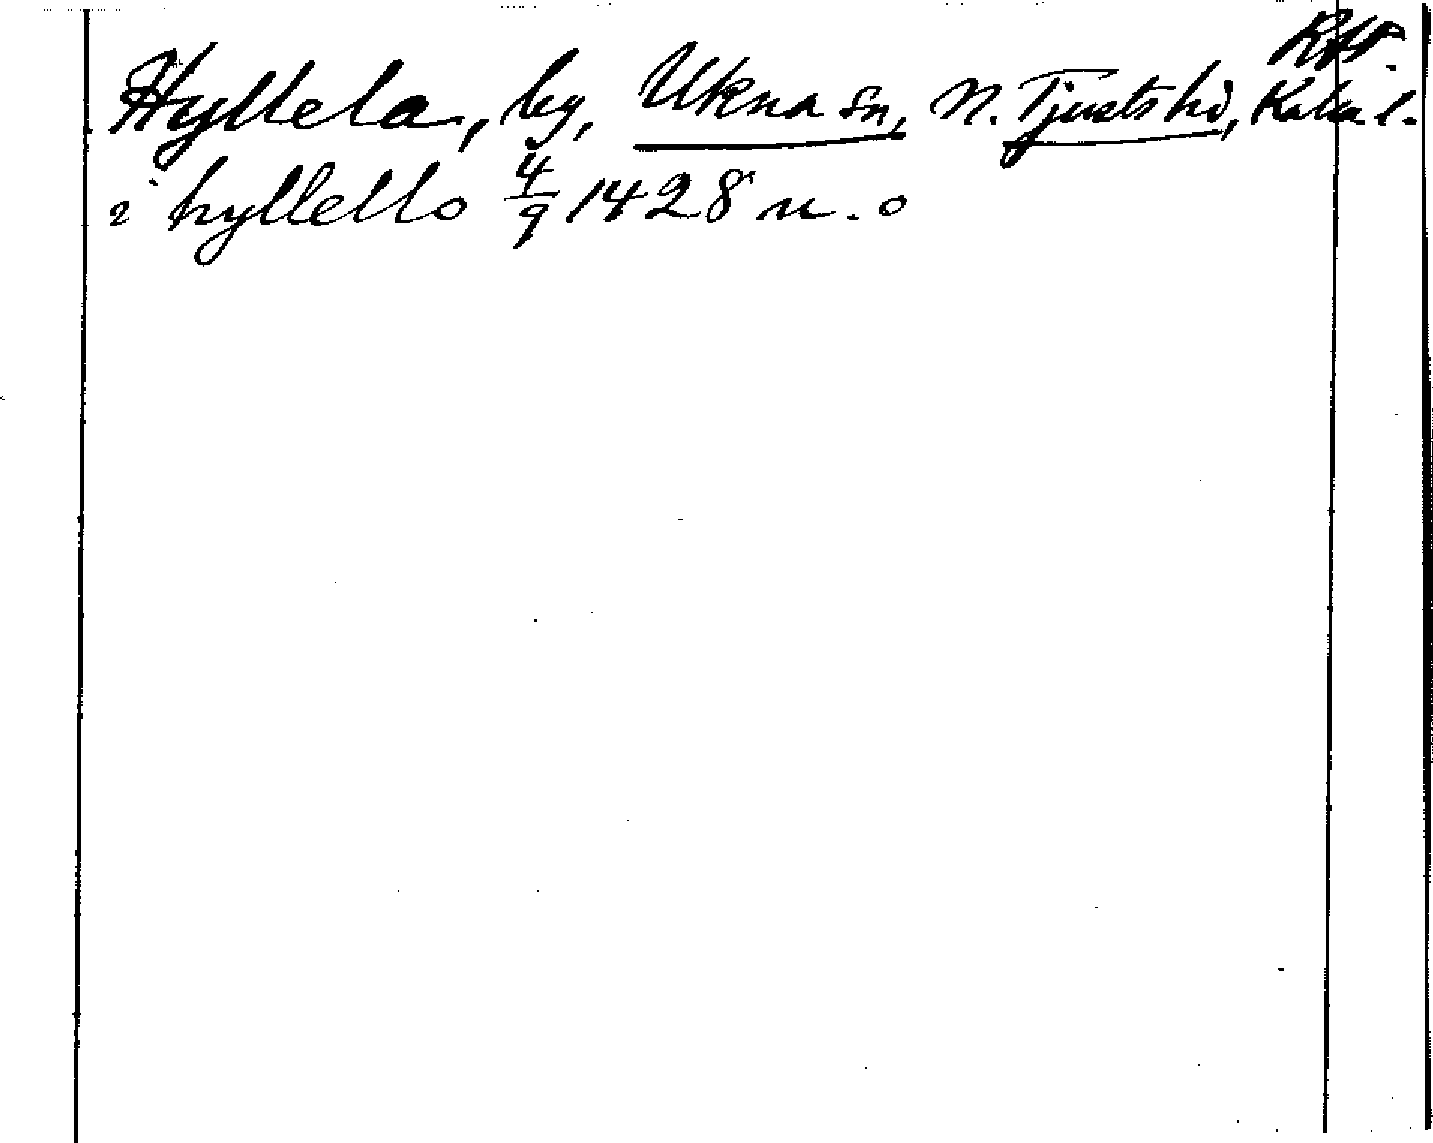 RAp.
Hyllela, by, Ukna sn, N. Tjusts hd, Kalm. l.
i hyllello 4/9 1428 n. o